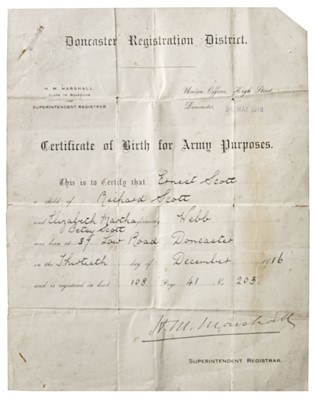 Doncaster Registration District.
H. M. MARSHALL
CLERK TO GUARDIANS
AND
SUPERINTENDENT REGISTRAR
Union Offices, High Street,
Doncaster
MAY
Certificate of Birth for Army Purposes.
This is to Certify that Ernest Scott
a child of Richard Scott
and Elizabeth Martha formerly Webb
Betsy Scott
was born at 39 Low Road Doncaster
on the Thirtieth day of December 1916
and is registered in book 108 Page 41 No 203.
H. M. Marshall
SUPERINTENDENT REGISTRAR.